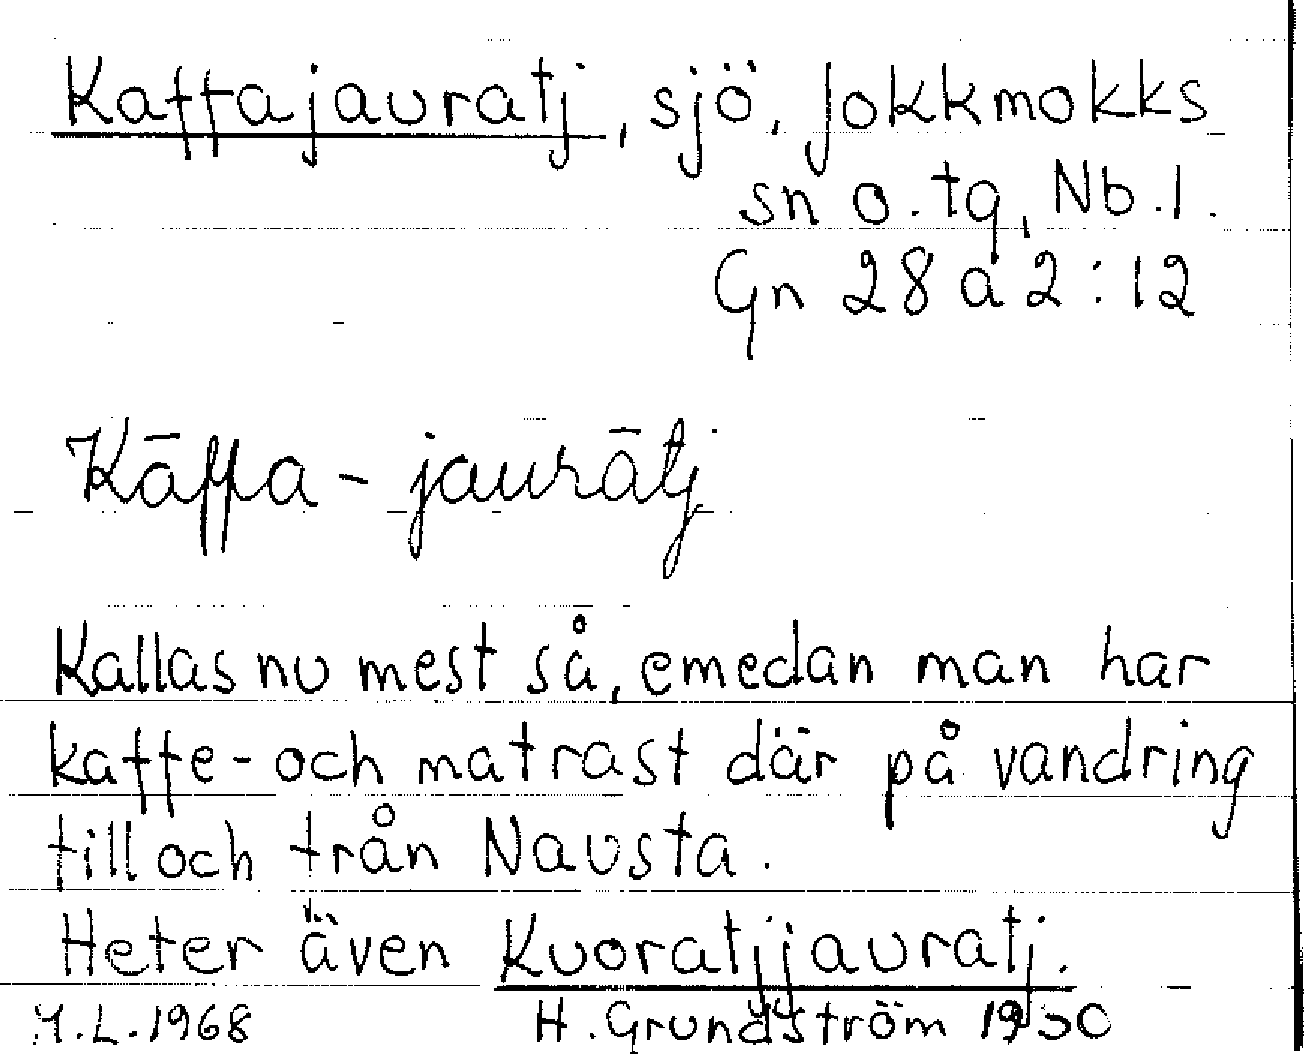 Kaffajauratj, sjö, Jokkmokks
sn o. tg, Nb.l.
Gn 28 a 2:12
Kāffa-jaurātj
Kallas nu mest så, emedan man har
kaffe- och matrast där på vandring
till och från Nausta.
Heter även Kuoratjjauratj.
Y.L.1968 H. Grundström 1930